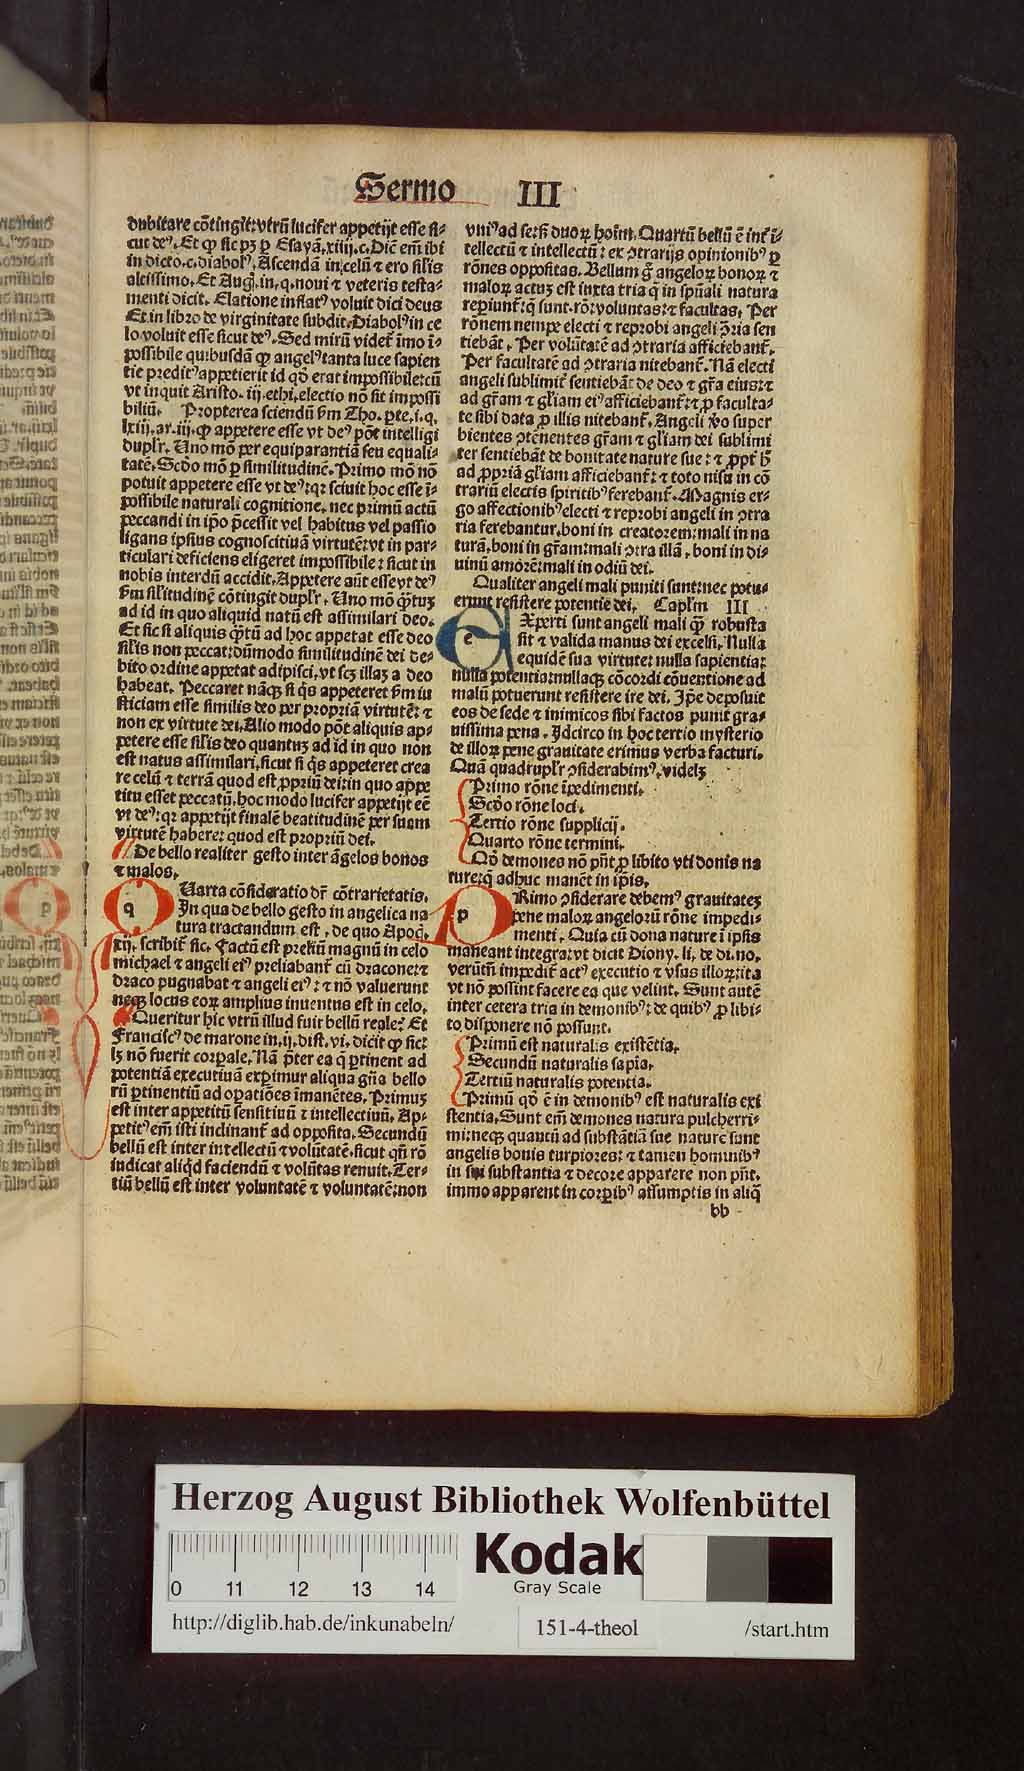 Sermo III
dubitare cõtingit: vtrũ lucifer appetijt esse si-
cut deꝰ. Et ꝙ sic pꝫ ꝑ Esayã. xiiij. c. Dic̃ em̃ ibi
in dicto. c. diabolꝰ. Ascendã in celũ ⁊ ero sil̃is
altissimo. Et Aug̃. in. q. noui ⁊ veteris testa-
menti dicit. Elatione inflatꝰ voluit dici deus
Et in libro de virginitate subdit. Diabolꝰ in ce
lo voluit esse sicut deꝰ. Sed mirũ videt̃ imo ĩ-
possibile quibusdã ꝙ angelꝰ tanta luce sapien
tie preditꝰ appetierit id qđ erat impossibile: cũ
vt inquit Aristo. iij. ethi. electio nõ sit impossi
biliũ. Propterea sciendũ ẜm Tho. ꝑte. i. q.
lxiij. ar. iij. ꝙ appetere esse vt deꝰ põt intelligi
duplr̃. Uno mõ per equiparantiã seu equali-
tatẽ. Scđo mõ ꝑ similitudinẽ. Primo mõ nõ
potuit appetere esse vt deꝰ: qꝛ sciuit hoc esse ĩ-
possibile naturali cognitione. nec primũ actũ
peccandi in ip̃o p̃cessit vel habitus vel passio
ligans ipsius cognoscitiuã virtutẽ: vt in par-
ticulari deficiens eligeret impossibile: sicut in
nobis interdũ accidit. Appetere aũt esse vt deꝰ
ẜm sil̃itudinẽ cõtingit duplr̃. Uno mõ q̃tuꝫ
ad id in quo aliquid natũ est assimilari deo.
Et sic si aliquis q̃tũ ad hoc appetat esse deo
sil̃is non peccat: dũmodo similitudinẽ dei de-
bito ordine appetat adipisci. vt scꝫ illaꝫ a deo
habeat. Peccaret nãcꝫ si q̃s appeteret ẜm iu
sticiam esse similis deo per propriã virtutẽ: ⁊
non ex virtute dei. Alio modo põt aliquis ap-
petere esse sil̃is deo quantuꝫ ad id in quo non
est natus assimilari. sicut si q̃s appeteret crea
re celũ ⁊ terrã quod est ꝓpriũ dei: in quo app̃e
titu esset peccatũ. hoc modo lucifer appetijt eẽ
vt deꝰ: qꝛ appetijt finalẽ beatitudinẽ per suam
virtutẽ habere: quod est propriũ dei.
De bello realiter gesto inter ãgelos bonos
⁊ malos.
q
Uarta cõsideratio dr̃ cõtrarietatis.
In qua de bello gesto in angelica na
tura tractandum est. de quo Apoc̃.
xij. scribit̃ sic. Factũ est preliũ magnũ in celo
michael ⁊ angeli eiꝰ preliabant̃ cũ dracone: ⁊
draco pugnabat ⁊ angeli eiꝰ: ⁊ nõ valuerunt
neqꝫ locus eoꝝ amplius inuentus est in celo.
Queritur hic vtrũ illud fuit bellũ reale? Et
Franciscꝰ de marone in. ij. dist. vi. dicit ꝙ sic:
lꝫ nõ fuerit corꝑale. Nã p̃ter ea q̃ ꝑtinent ad
potentiã executiuã exꝑimur aliqua gñ̃a bello
rũ ꝑtinentiũ ad oꝑatiões ĩmanẽtes. Primuꝫ
est inter appetitũ sensitiuũ ⁊ intellectiuũ. Ap-
petitꝰ em̃ isti inclinant̃ ad opposita. Secundũ
bellũ est inter intellectũ ⁊ volũtatẽ. sicut qñ rõ
iudicat aliq̃d faciendũ ⁊ volũtas renuit. Ter-
tiũ bellũ est inter voluntatẽ ⁊ voluntatẽ: non
vniꝰ ad se: sꝫ duoꝝ hoĩm. Quartũ bellũ ẽ int̃ ĩ-
tellectũ ⁊ intellectũ: ex ꝯtrarijs opinionibꝰ ꝑ
rõnes oppositas. Bellum g̃ angeloꝝ bonoꝝ ⁊
maloꝝ actuꝫ est iuxta tria q̃ in sp̃uali natura
reꝑiunt̃: q̃ sunt. rõ: voluntas: ⁊ facultas. Per
rõnem nempe electi ⁊ reprobi angeli ꝯ̃ria sen
tiebãt. Per volũtatẽ ad ꝯtraria afficiebant̃.
Per facultatẽ ad ꝯtraria nitebant̃. Nã electi
angeli sublimit̃ sentiebãt de deo ⁊ gr̃a eius: ⁊
ad gr̃am ⁊ gl̃iam eiꝰ afficiebant̃: ⁊ ꝓ faculta-
te sibi data ꝓ illis nitebant̃. Angeli v̾o super
bientes ꝯtẽnentes gr̃am ⁊ gl̃iam dei sublimi
ter sentiebãt de bonitate nature sue: ⁊ ꝓpt̃ h̃
ad ꝓpriã gl̃iam afficiebant̃: ⁊ toto nisu in cõ
trariũ electis spiritibꝰ ferebant̃. Magnis er-
go affectionibꝰ electi ⁊ reprobi angeli in ꝯtra
ria ferebantur. boni in creatorem: mali in na
turã. boni in gr̃am: mali ꝯtra illã. boni in di-
uinũ amorẽ: mali in odiũ dei.
Qualiter angeli mali puniti sunt: nec potu-
erunt resistere potentie dei. Capl̃m III
e
Xperti sunt angeli mali q̃ robusta
sit ⁊ valida manus dei excelsi. Nulla
equidẽ sua virtute: nulla sapientia:
nulla potentia: nullaqꝫ cõcordi cõuentione ad
malũ potuerunt resistere ire dei. Ip̃e deposuit
eos de sede ⁊ inimicos sibi factos punit gra-
uissima pena. Idcirco in hoc tertio mysterio
de illoꝝ pene grauitate erimus verba facturi.
Quã quadruplr̃ ꝯsiderabimꝰ. videlꝫ
Primo rõne ĩpedimenti.
Scđo rõne loci.
Tertio rõne supplicij.
Quarto rõne termini.
Qđ demones nõ pñt ꝓ libito vti donis na
ture: q̃ adhuc manẽt in ip̃is.
p
Rimo ꝯsiderare debemꝰ grauitateꝫ
pene maloꝝ angelorũ rõne impedi-
menti. Quia cũ dona nature ĩ ipsis
maneant integra: vt dicit Diony. li. de di. no.
verũtñ impedit̃ actꝰ executio ⁊ vsus illoꝝ: ita
vt nõ possint facere ea que velint. Sunt autẽ
inter cetera tria in demonibꝰ: de quibꝰ ꝓ libi-
to disponere nõ possunt.
Primũ est naturalis existẽtia.
Secundũ naturalis sapĩa.
Tertiũ naturalis potentia.
Primũ qđ ẽ in demonibꝰ est naturalis exi
stentia. Sunt em̃ demones natura pulcherri-
mi: neqꝫ quantũ ad substãtiã sue nature sunt
angelis bonis turpiores: ⁊ tamen hominibꝰ
in sui substantia ⁊ decore apparere non pñt.
immo apparent in corꝑibꝰ assumptis in aliq̃
bb
Herzog August Bibliothek Wolfenbüttel
0 11 12 13 14
Kodak
Gray Scale
http://diglib.hab.de/inkunabeln/ 151-4-theol /start.htm